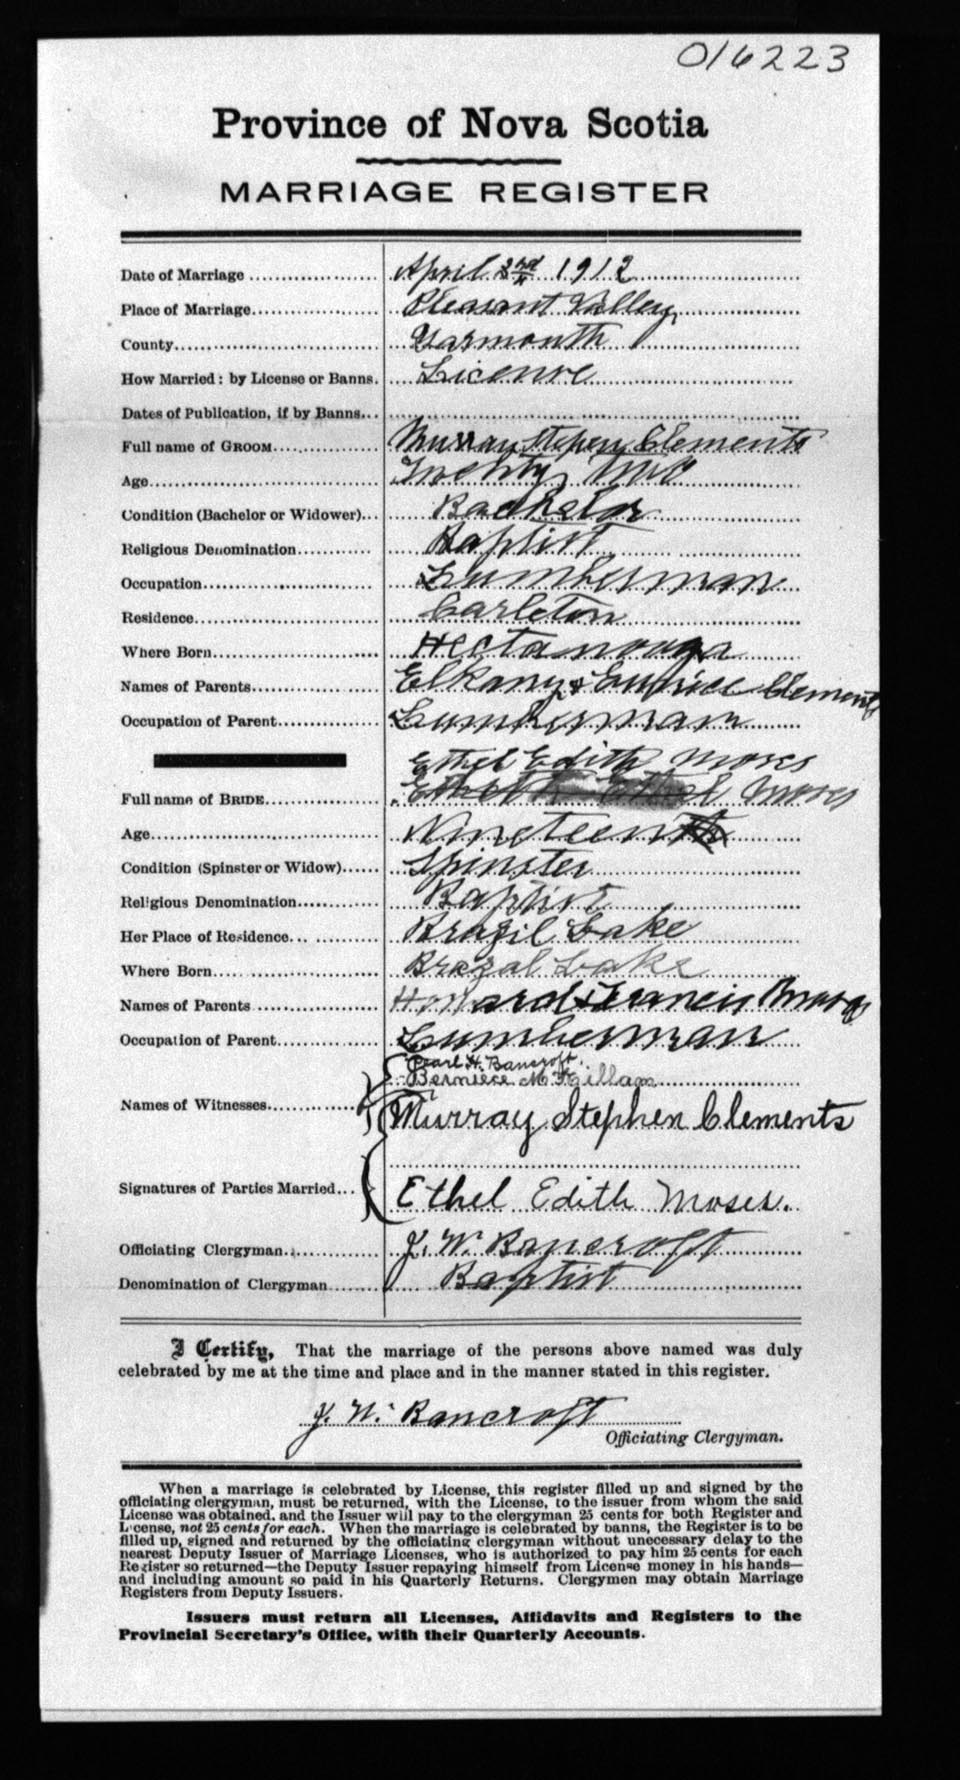 016223
Province of Nova Scotia
MARRIAGE REGISTER
Date of Marriage April 3rd 1912
Place of Marriage Pleasant Valley
County Yarmouth
How Married: by License or Banns. License
Dates of Publication, if by Banns
Full name of GROOM Murray Stephen Clements
Age Twenty,
Condition (Bachelor or Widower) Bachelor
Religious Denomination Baptist
Occupation Lumberman
Residence Carleton
Where Born Hectanooga
Names of Parents Elkany & Clements
Occupation of Parent Lumberman
Ethel Edith Moses
Full name of BRIDE Ethel Moses
Age Nineteen
Condition (Spinster or Widow) Spinster
Religious Denomination Baptist
Her Place of Residence Brazil Lake
Where Born Brazal Lake
Names of Parents Howard & Francis Moses
Occupation of Parent Lumberman
Pearl H. Bancroft.
Berniece M. Killam
Names of Witnesses
Murray Stephen Clements
Signatures of Parties Married Ethel Edith Moses.
Officiating Clergyman J. W. Bancroft
Denomination of Clergyman Baptist
I Certify, That the marriage of the persons above named was duly
celebrated by me at the time and place and in the manner stated in this register.
J. W. Bancroft
Officiating Clergyman.
When a marriage is celebrated by License, this register filled up and signed by the
officiating clergyman, must be returned, with the License, to the issuer from whom the said
License was obtained, and the Issuer will pay to the clergyman 25 cents for both Register and
License, not 25 cents for each. When the marriage is celebrated by banns, the Register is to be
filled up, signed and returned by the officiating clergyman without unecessary delay to the
nearest Deputy Issuer of Marriage Licenses, who is authorized to pay him 25 cents for each
Register so returned—the Deputy Issuer repaying himself from License money in his hands—
and including amount so paid in his Quarterly Returns. Clergymen may obtain Marriage
Registers from Deputy Issuers.
Issuers must return all Licenses, Affidavits and Registers to the
Provincial Secretary's Office, with their Quarterly Accounts.